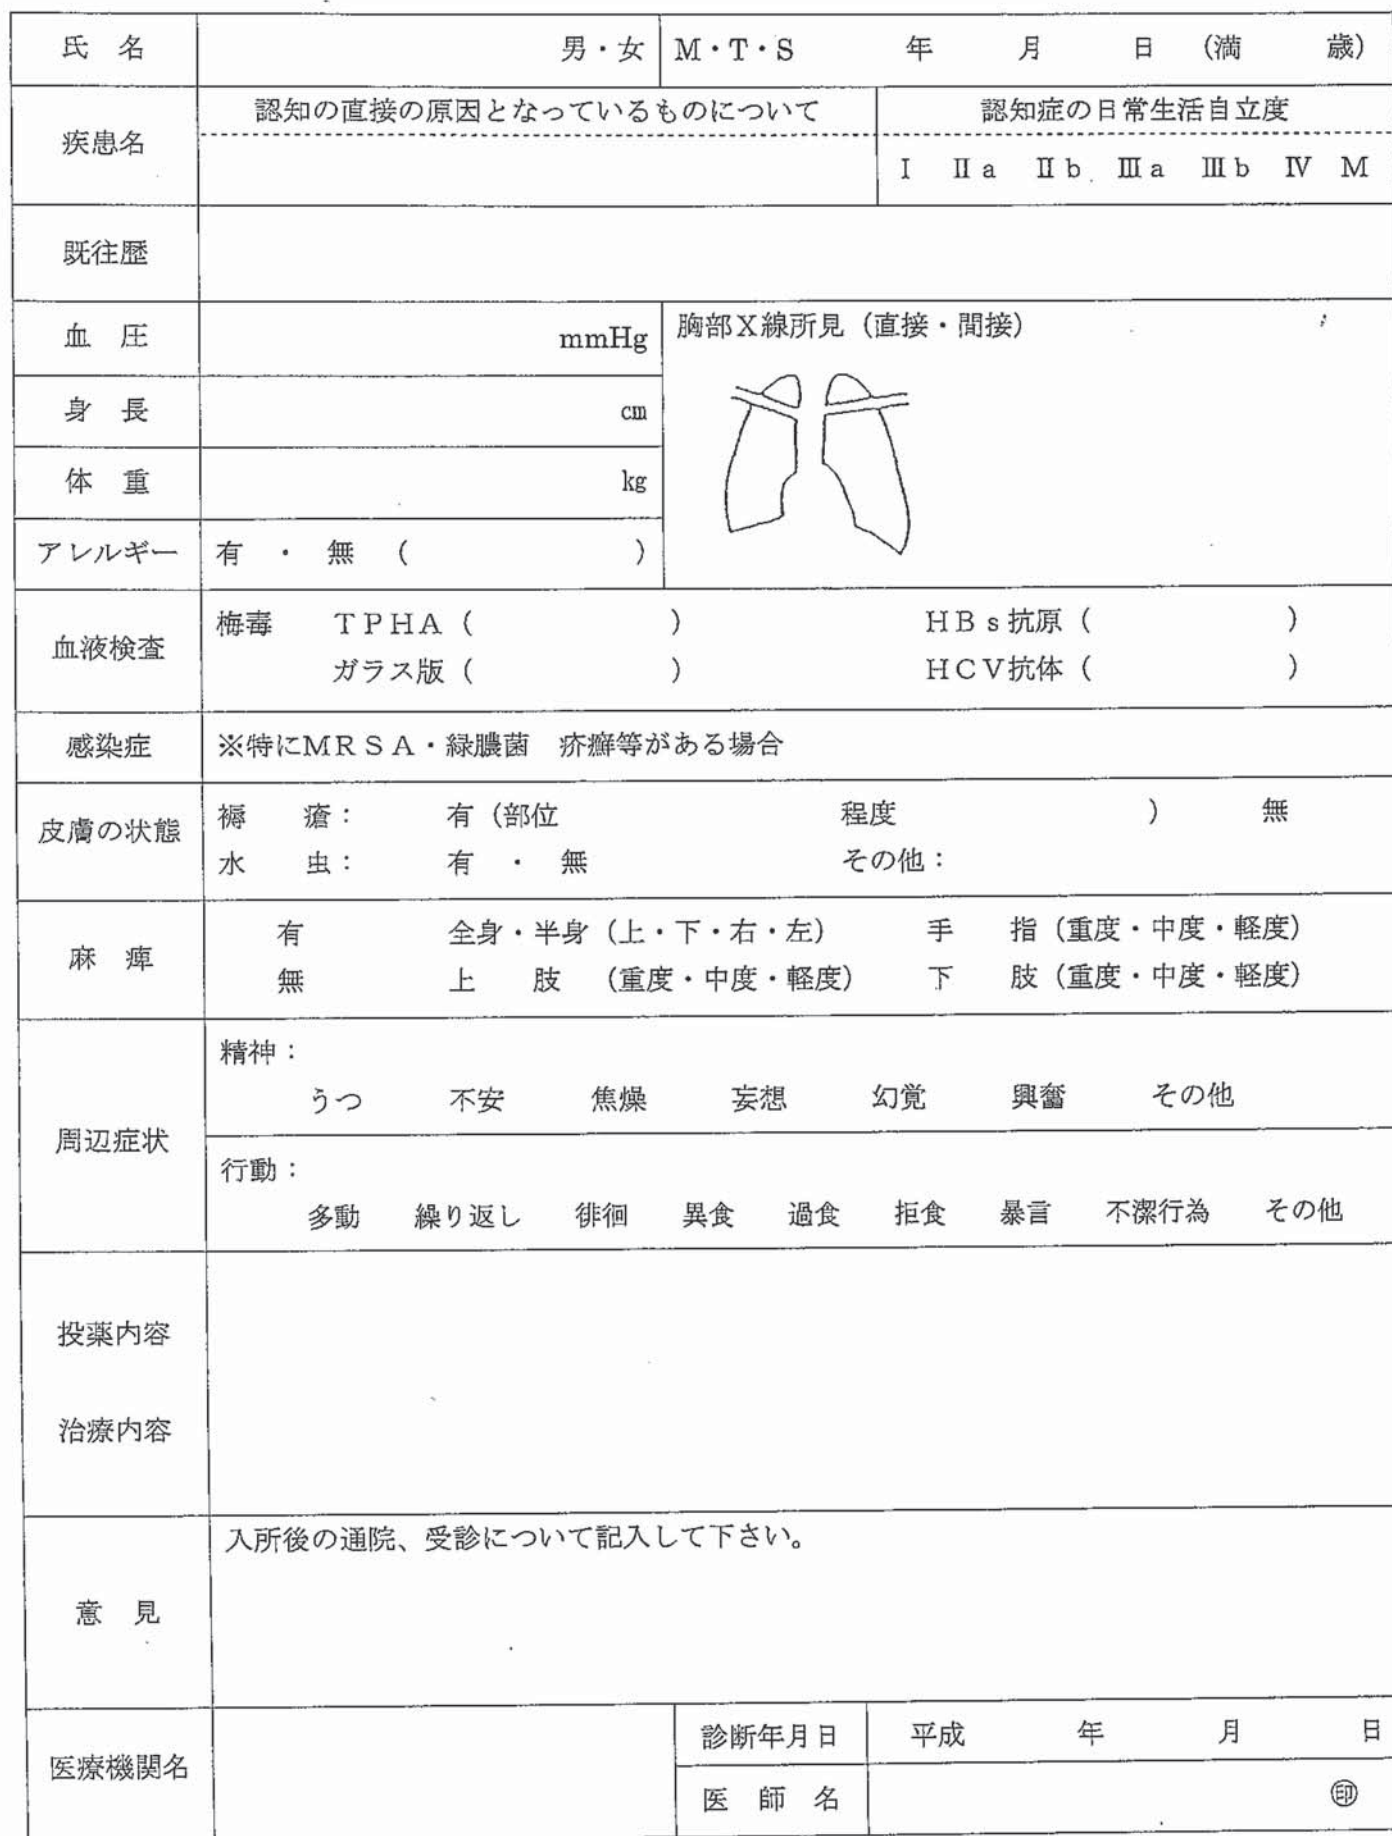 氏 名 男・女 M・T・S 年 月 日 (満 歳)
疾患名 認知の直接の原因となっているものについて 認知症の日常生活自立度
Ⅰ Ⅱa Ⅱb Ⅲa Ⅲb Ⅳ M
既往歴
血 圧 mmHg 胸部X線所見(直接・間接)
身 長 cm
体 重 kg
アレルギー 有 ・ 無 ( )
血液検査 梅毒 TPHA( ) HBs抗原( )
ガラス版( ) HCV抗体( )
感染症 ※特にMRSA・緑膿菌 疥癬等がある場合
皮膚の状態 褥 瘡: 有(部位 程度 ) 無
水 虫: 有 ・ 無 その他:
麻 痺 有 全身・半身(上・下・右・左) 手 指(重度・中度・軽度)
無 上 肢 (重度・中度・軽度) 下 肢(重度・中度・軽度)
周辺症状 精神:
うつ 不安 焦燥 妄想 幻覚 興奮 その他
行動:
多動 繰り返し 徘徊 異食 過食 拒食 暴言 不潔行為 その他
投薬内容
治療内容
意 見 入所後の通院、受診について記入して下さい。
医療機関名 診断年月日 平成 年 月 日
医 師 名 ㊞